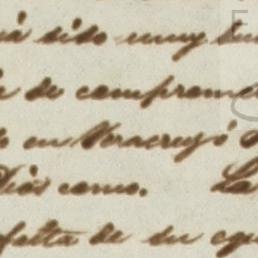 sido muy
de comprome
en Veracruz ó
Dios como. La
falta de su